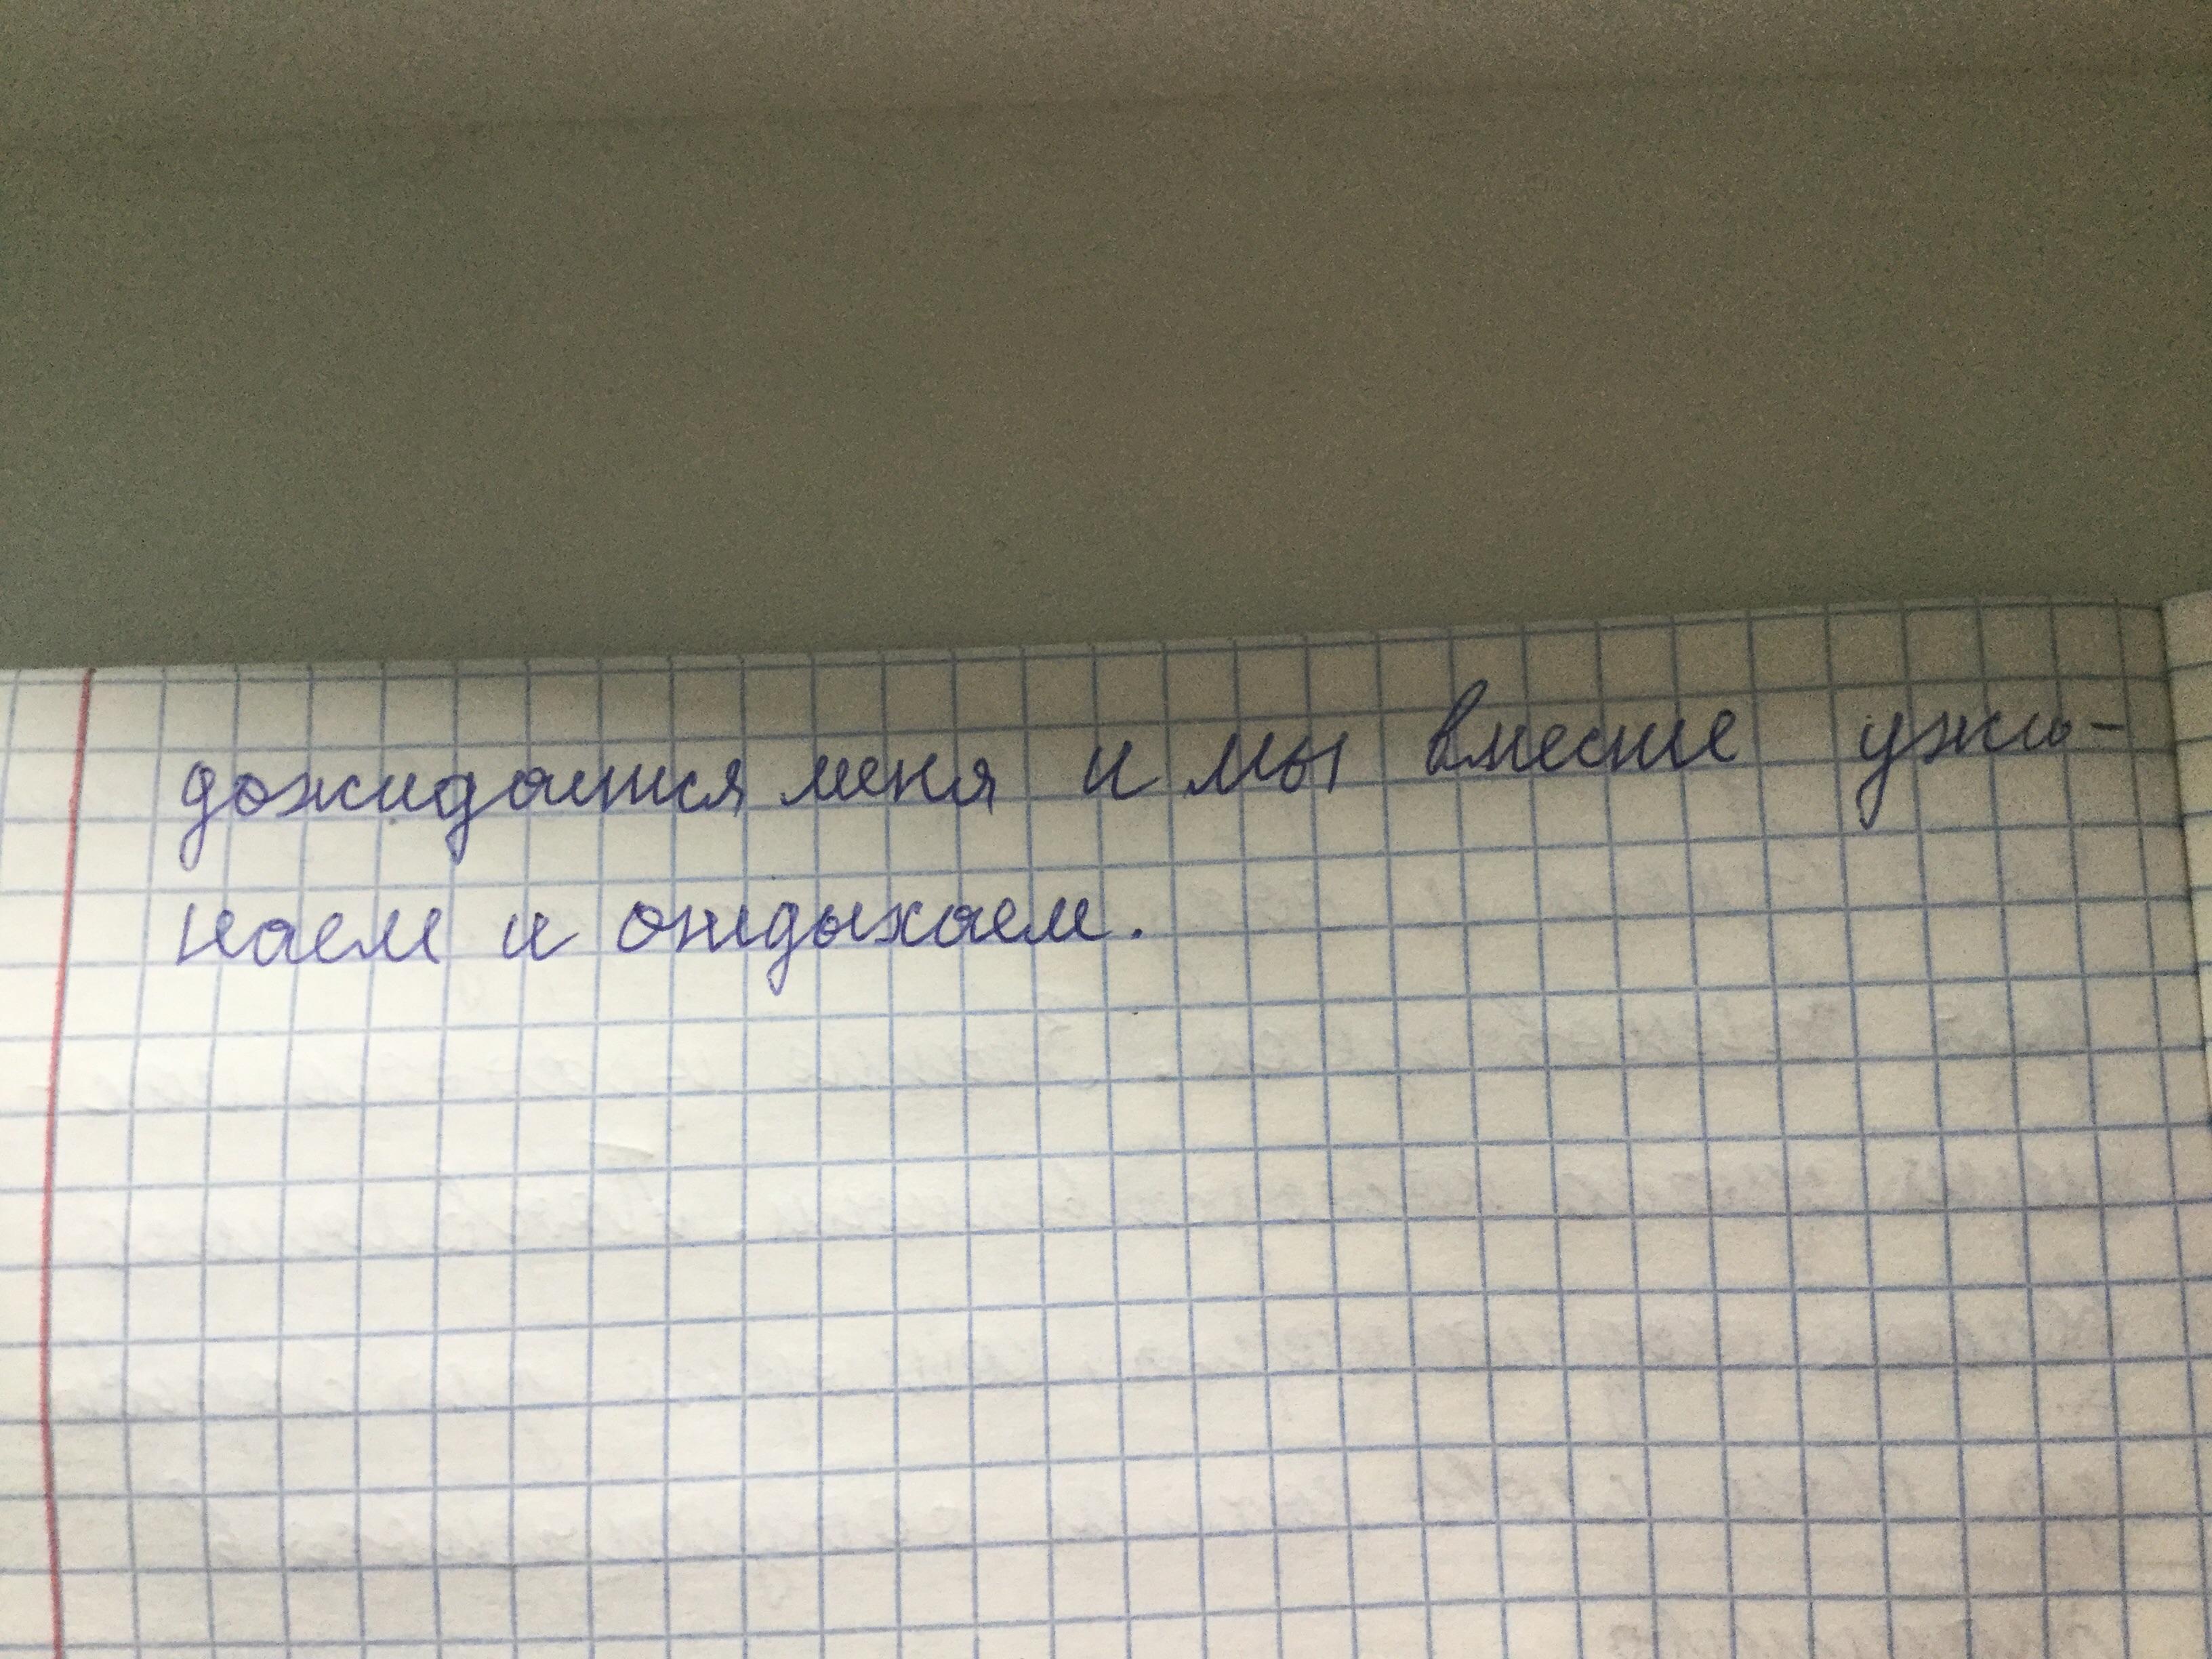 дожидается меня и мы вместе ужи-
наем и отдыхаем.